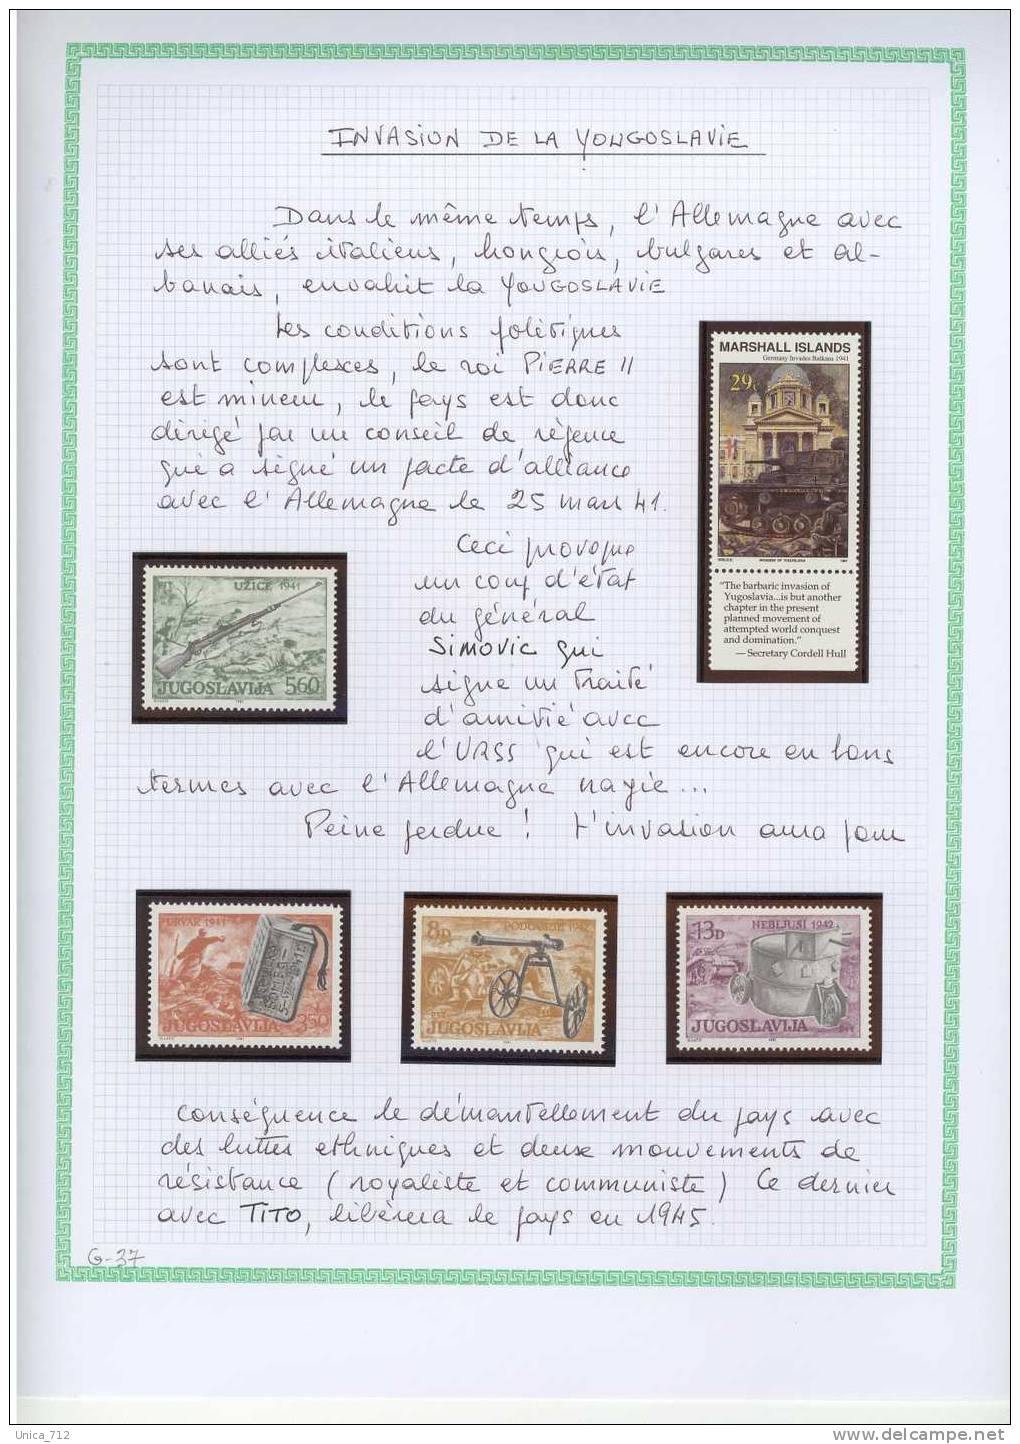 INVASION DE LA YOUGOSLAVIE
Dans le même temps, l'Allemagne avec
ses alliés italiens, hongrois, bulgares et al-
banais, envahit la YOUGOSLAVIE
Les conditions politiques
sont complexes, le roi PIERRE II
est mineur, le pays est donc
dirigé par un conseil de régence
qui a signé un pacte d'alliance
avec l'Allemagne le 25 mars 41.
MARSHALL ISLANDS
Germany Invades Balkans 1941
29c
"The barbaric invasion of
Yugoslavia...is but another
chapter in the present
planned movement of
attempted world conquest
and domination."
— Secretary Cordell Hull
Ceci provoque
un coup d'état
du général
SIMOVIC qui
signe un traité
d'amitié avec
l'URSS qui est encore en bons
termes avec l'Allemagne nazie...
UŽICE 1941
JUGOSLAVIJA 5.60
Peine perdue ! L'invasion aura pour
DRVAR 1941
JUGOSLAVIJA 3.50
8D PODGORJE 1942
JUGOSLAVIJA
13D NEBLJUSI 1942
JUGOSLAVIJA
conséquence le démantellement du pays avec
des luttes ethniques et deux mouvements de
résistance (royaliste et communiste) Ce dernier
avec TITO, libérera le pays en 1945.
G-37
Unica_712
www.delcampe.net